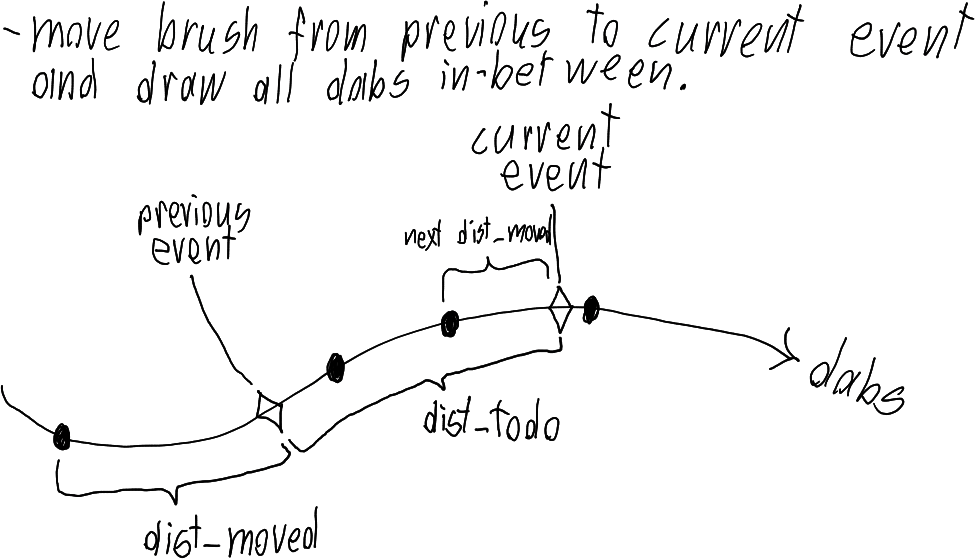 - move brush from previous to current event
and draw all dabs in-between.
current
event
previous
event
next dist_moved
dabs
dist_todo
dist_moved